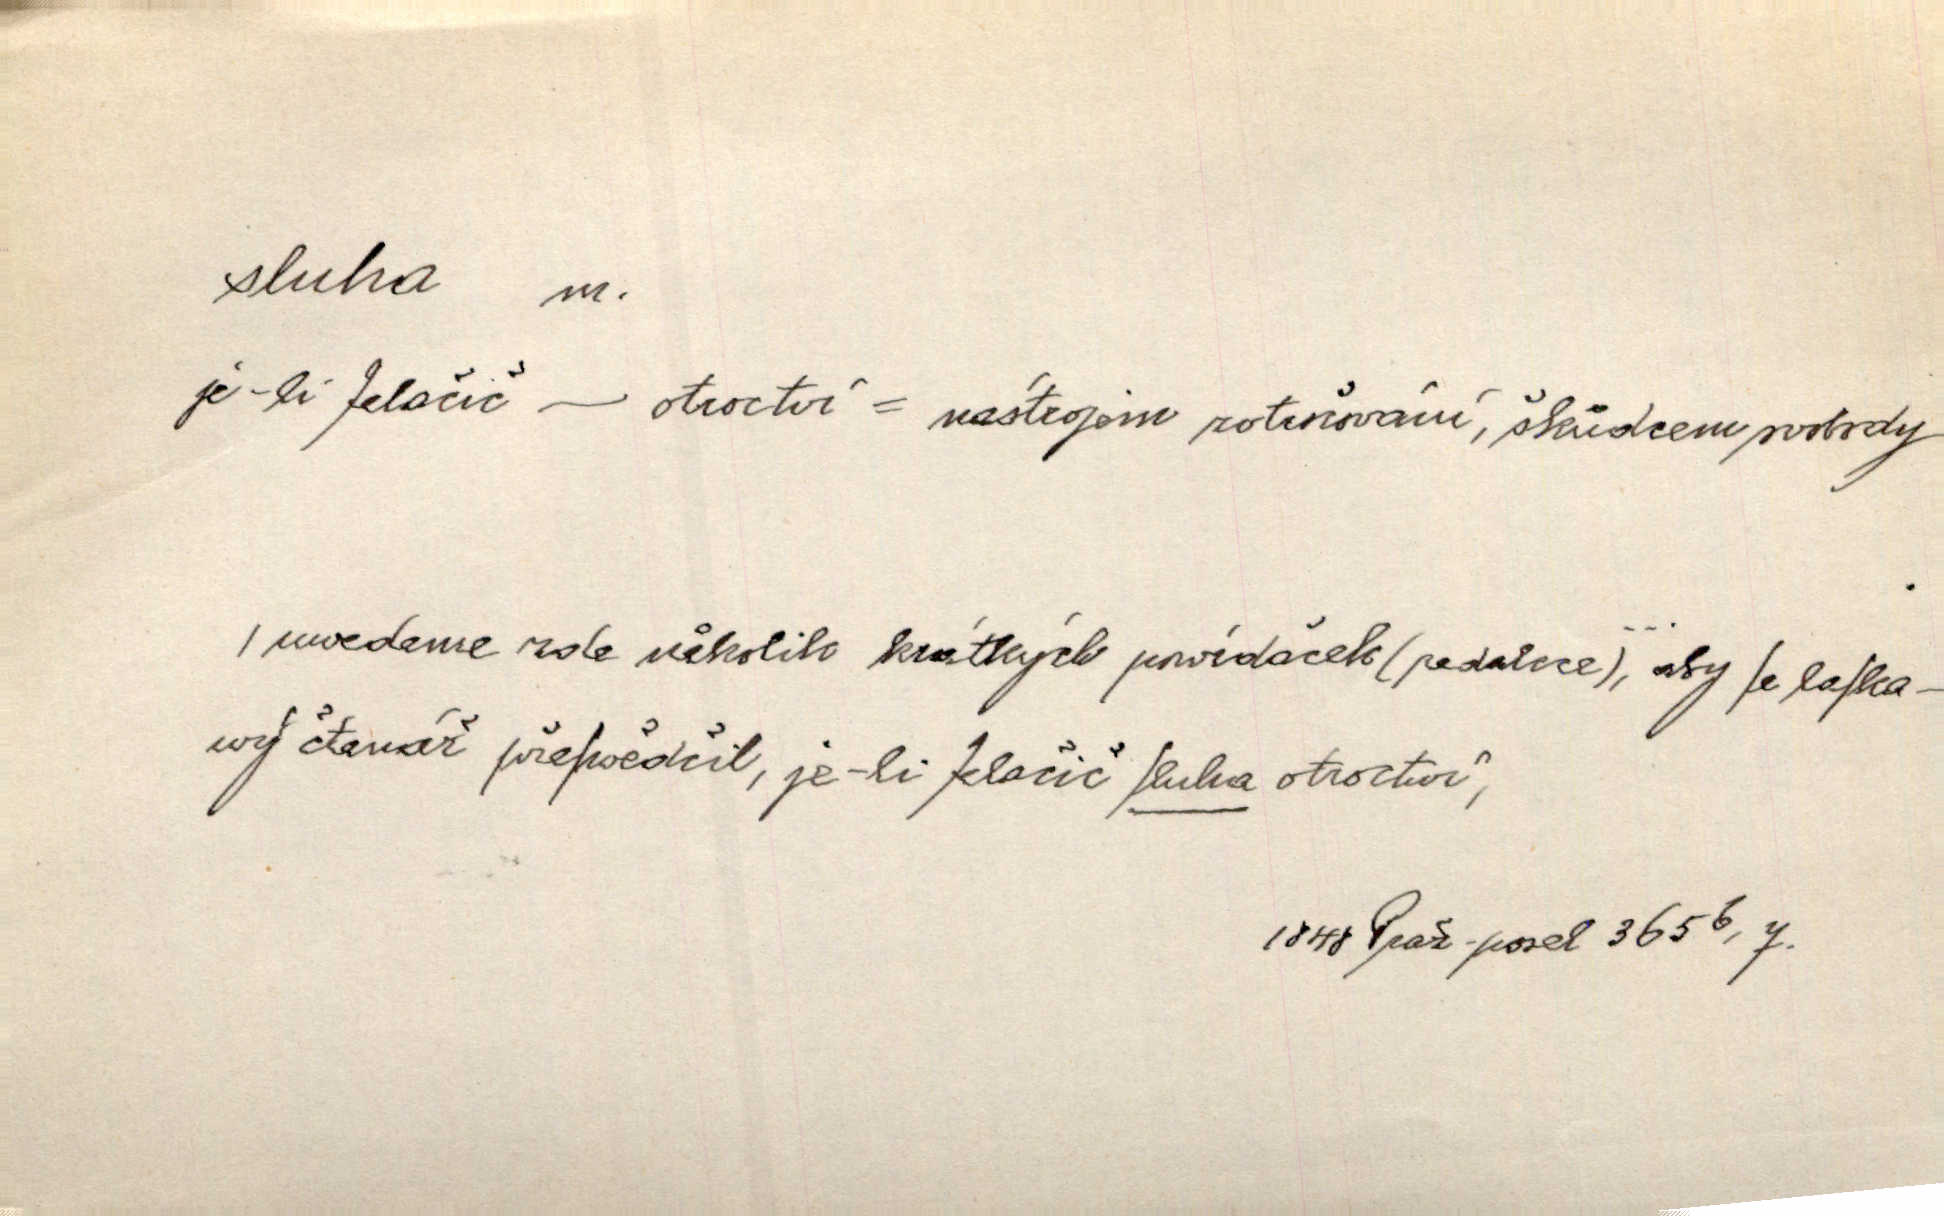 sluha m.
je-li Jelačić — otroctví = nástrojem zotročování, škůdcem svobody
/ uwedeme zde několik krátkých powídaček (redakce), ... aby ſe laſka-
wý čtenář přeſwědčil, je-li Jelačić ſluha otroctwí,
1848 Praž. posel 365b, 7.